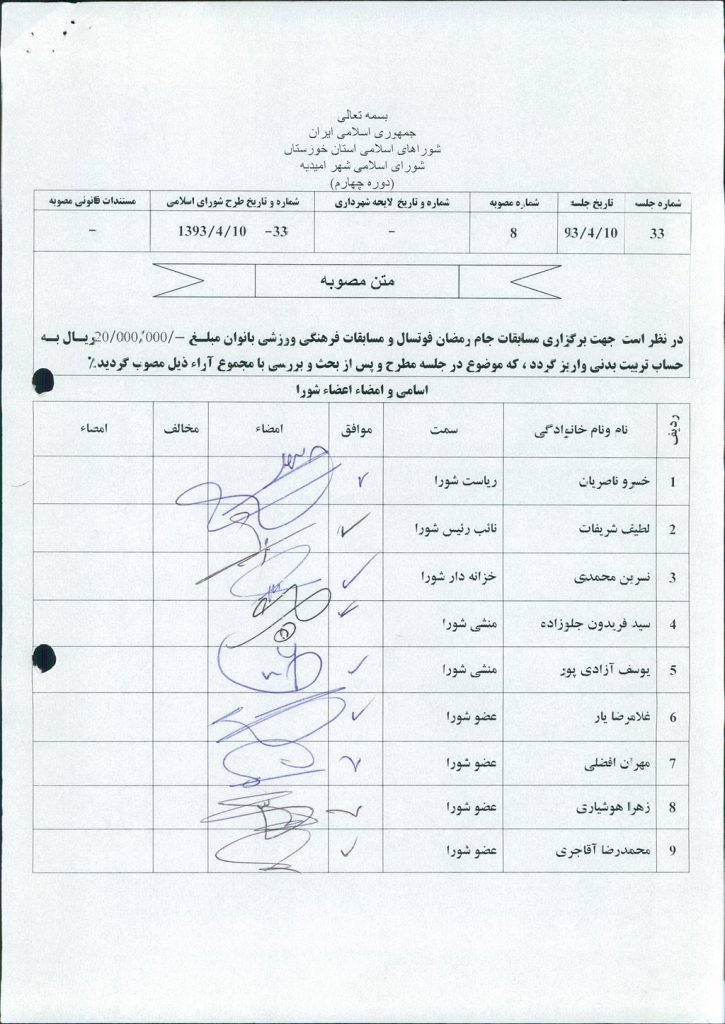 بسمه تعالی
جمهوری اسلامی ایران
شوراهای اسلامی استان خوزستان
شورای اسلامی شهر امیدیه
(دوره چهارم)
شماره جلسه تاریخ جلسه شماره مصوبه شماره و تاریخ لایحه شهرداری شماره و تاریخ طرح شورای اسلامی مستندات قانونی مصوبه
33 93/4/10 8 - 33- 1393/4/10 -
متن مصوبه
در نظر است جهت برگزاری مسابقات جام رمضان فوتسال و مسابقات فرهنگی ورزشی بانوان مبلغ -/20/000,000 ریال به
حساب تربیت بدنی واریز گردد ، که موضوع در جلسه مطرح و پس از بحث و بررسی با مجموع آراء ذیل مصوب گردید.٪
اسامی و امضاء اعضاء شورا
ردیف نام ونام خانوادگی سمت موافق امضاء مخالف امضاء
1 خسرو ناصریان ریاست شورا
2 لطیف شریفات نائب رئیس شورا
3 نسرین محمدی خزانه دار شورا
4 سید فریدون جلوزاده منشی شورا
5 یوسف آزادی پور منشی شورا
6 غلامرضا یار عضو شورا
7 مهران افضلی عضو شورا
8 زهرا هوشیاری عضو شورا
9 محمدرضا آقاجری عضو شورا